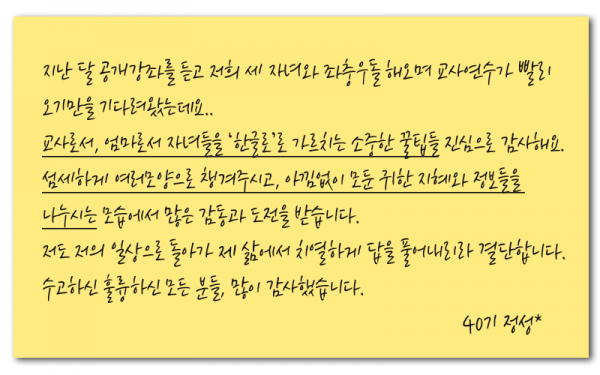 지난 달 공개강좌를 듣고 저희 세 자녀와 좌충우돌 해오며 교사연수가 빨리
오기만을 기다려왔는데요..
교사로서, 엄마로서 자녀들을 '한글로'로 가르치는 소중한 꿀팁들 진심으로 감사해요.
섬세하게 여러모양으로 챙겨주시고, 아낌없이 모둔 귀한 지혜와 정보들을
나누시는 모습에서 많은 감동과 도전을 받습니다.
저도 저의 일상으로 돌아가 제 삶에서 치열하게 답을 풀어내리라 결단합니다.
수고하신 훌륭하신 모든 분들, 많이 감사했습니다.
40기 정성*